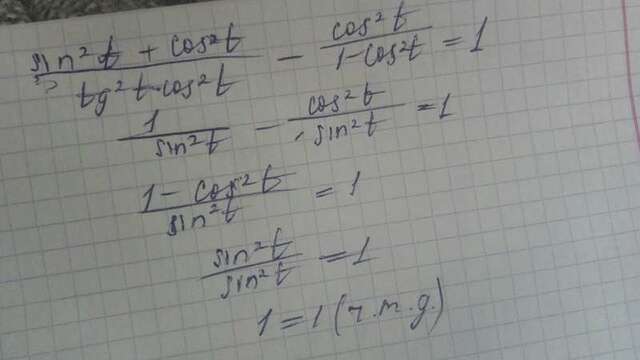 (sin²t + cos²t)/(tg²t·cos²t) − cos²t/(1−cos²t) = 1
1/sin²t − cos²t/sin²t = 1
(1 − cos²t)/sin²t = 1
sin²t/sin²t = 1
1 = 1 (г.т.g.)